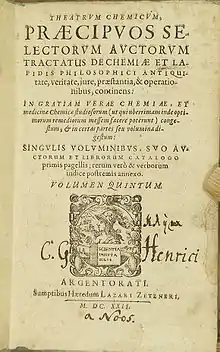 THEATRVM CHEMICVM,
PRÆCIPVOS
SELECTORVM AVCTORVM
TRACTATVS DE CHEMIÆ ET LA-
PIDIS PHILOSOPHICI ANTIQUI-
tate, veritate, iure, præstantia, & operatio-
nibus, continens:
IN GRATIAM VERAE CHEMIAE, ET
medicinæ Chemicæ studiosorum (ut qui uberrimam inde opti-
morum remediorum messem facere poterunt) conge-
stum, & in certas partes seu volumina di-
gestum:
SINGVLIS VOLVMINIBVS, SVO AV-
CTORVM ET LIBRORVM CATALOGO
primis pagellis: rerum verò & verborum
indice postremis annexo.
VOLVMEN QUINTUM.
SCIENTIA
C. G. Henrici
ARGENTORATI,
Sumptibus Hæredum LAZARI ZETZNERI,
M. DC. XXII.